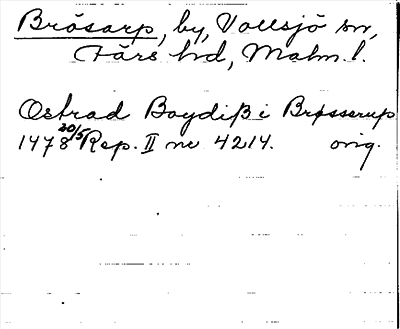 Brösarp, by, Vollsjö sn,
Färs hd, Malm. l.
Ostrad Boydiß i Brøsserup
1478 20/5 Rep. II nr 4214. orig.